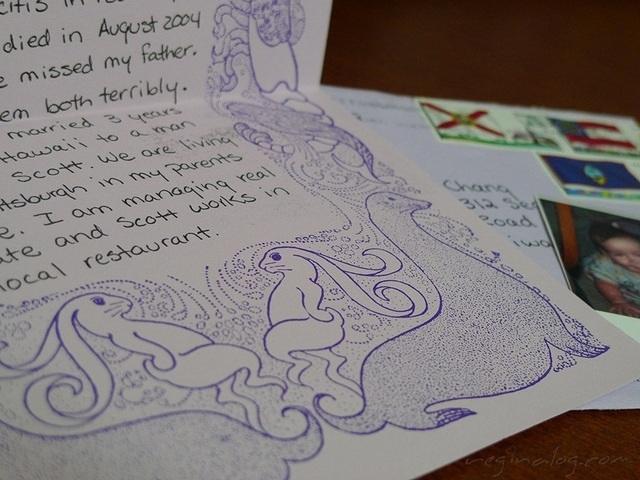 citis in
died in August 2004
missed my father.
em both terribly.
married 3 years
Hawaii to a man
Scott. We are living
ttsburgh in my parents
e. I am managing real
ate and Scott works in
local restaurant.
Chang
312 Sec
Road
iwa
reginalog.com